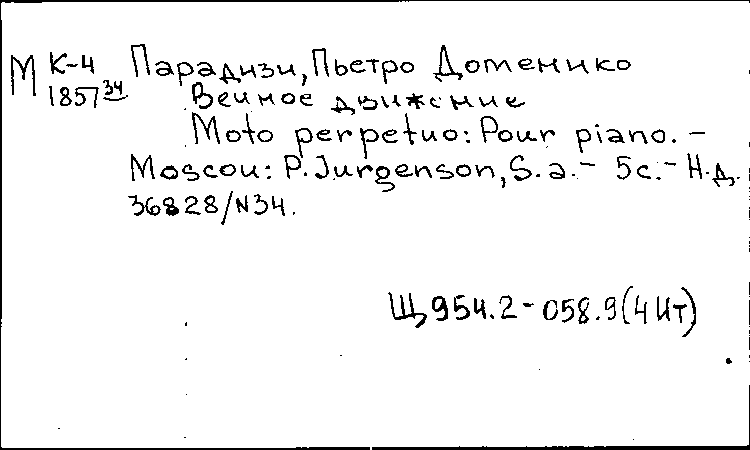 М К-4 Парадизи, Пьетро Доменико
1857 34 Вечное движение
Moto perpetuo: Pour piano. –
Moscou: P. Jurgenson, S. a. – 5 с. – Н.д.
36828/N34.
Щ954.2-058.9(4Ит)